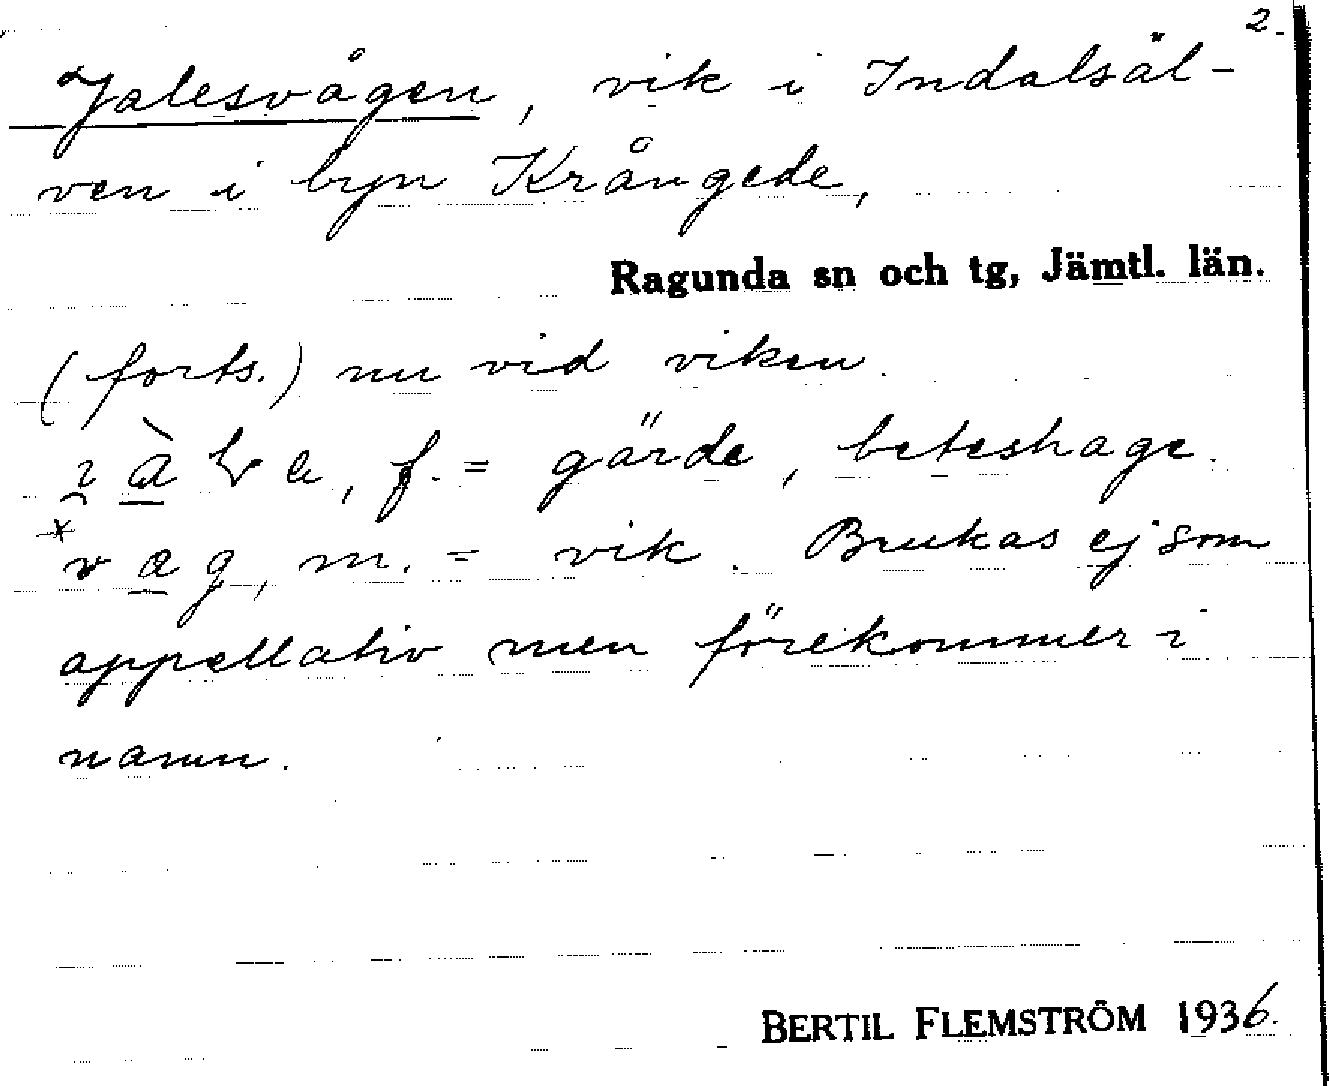 2.
Jalesvågen, vik i Indalsäl-
ven i byn Krångede,
Ragunda sn och tg, Jämtl. län.
(forts.) nu vid viken.
f. = gärde, beteshage.
*vag, m. = vik. Brukas ej som
appellativ men förekommer i
namn.
BERTIL FLEMSTRÖM 1936.